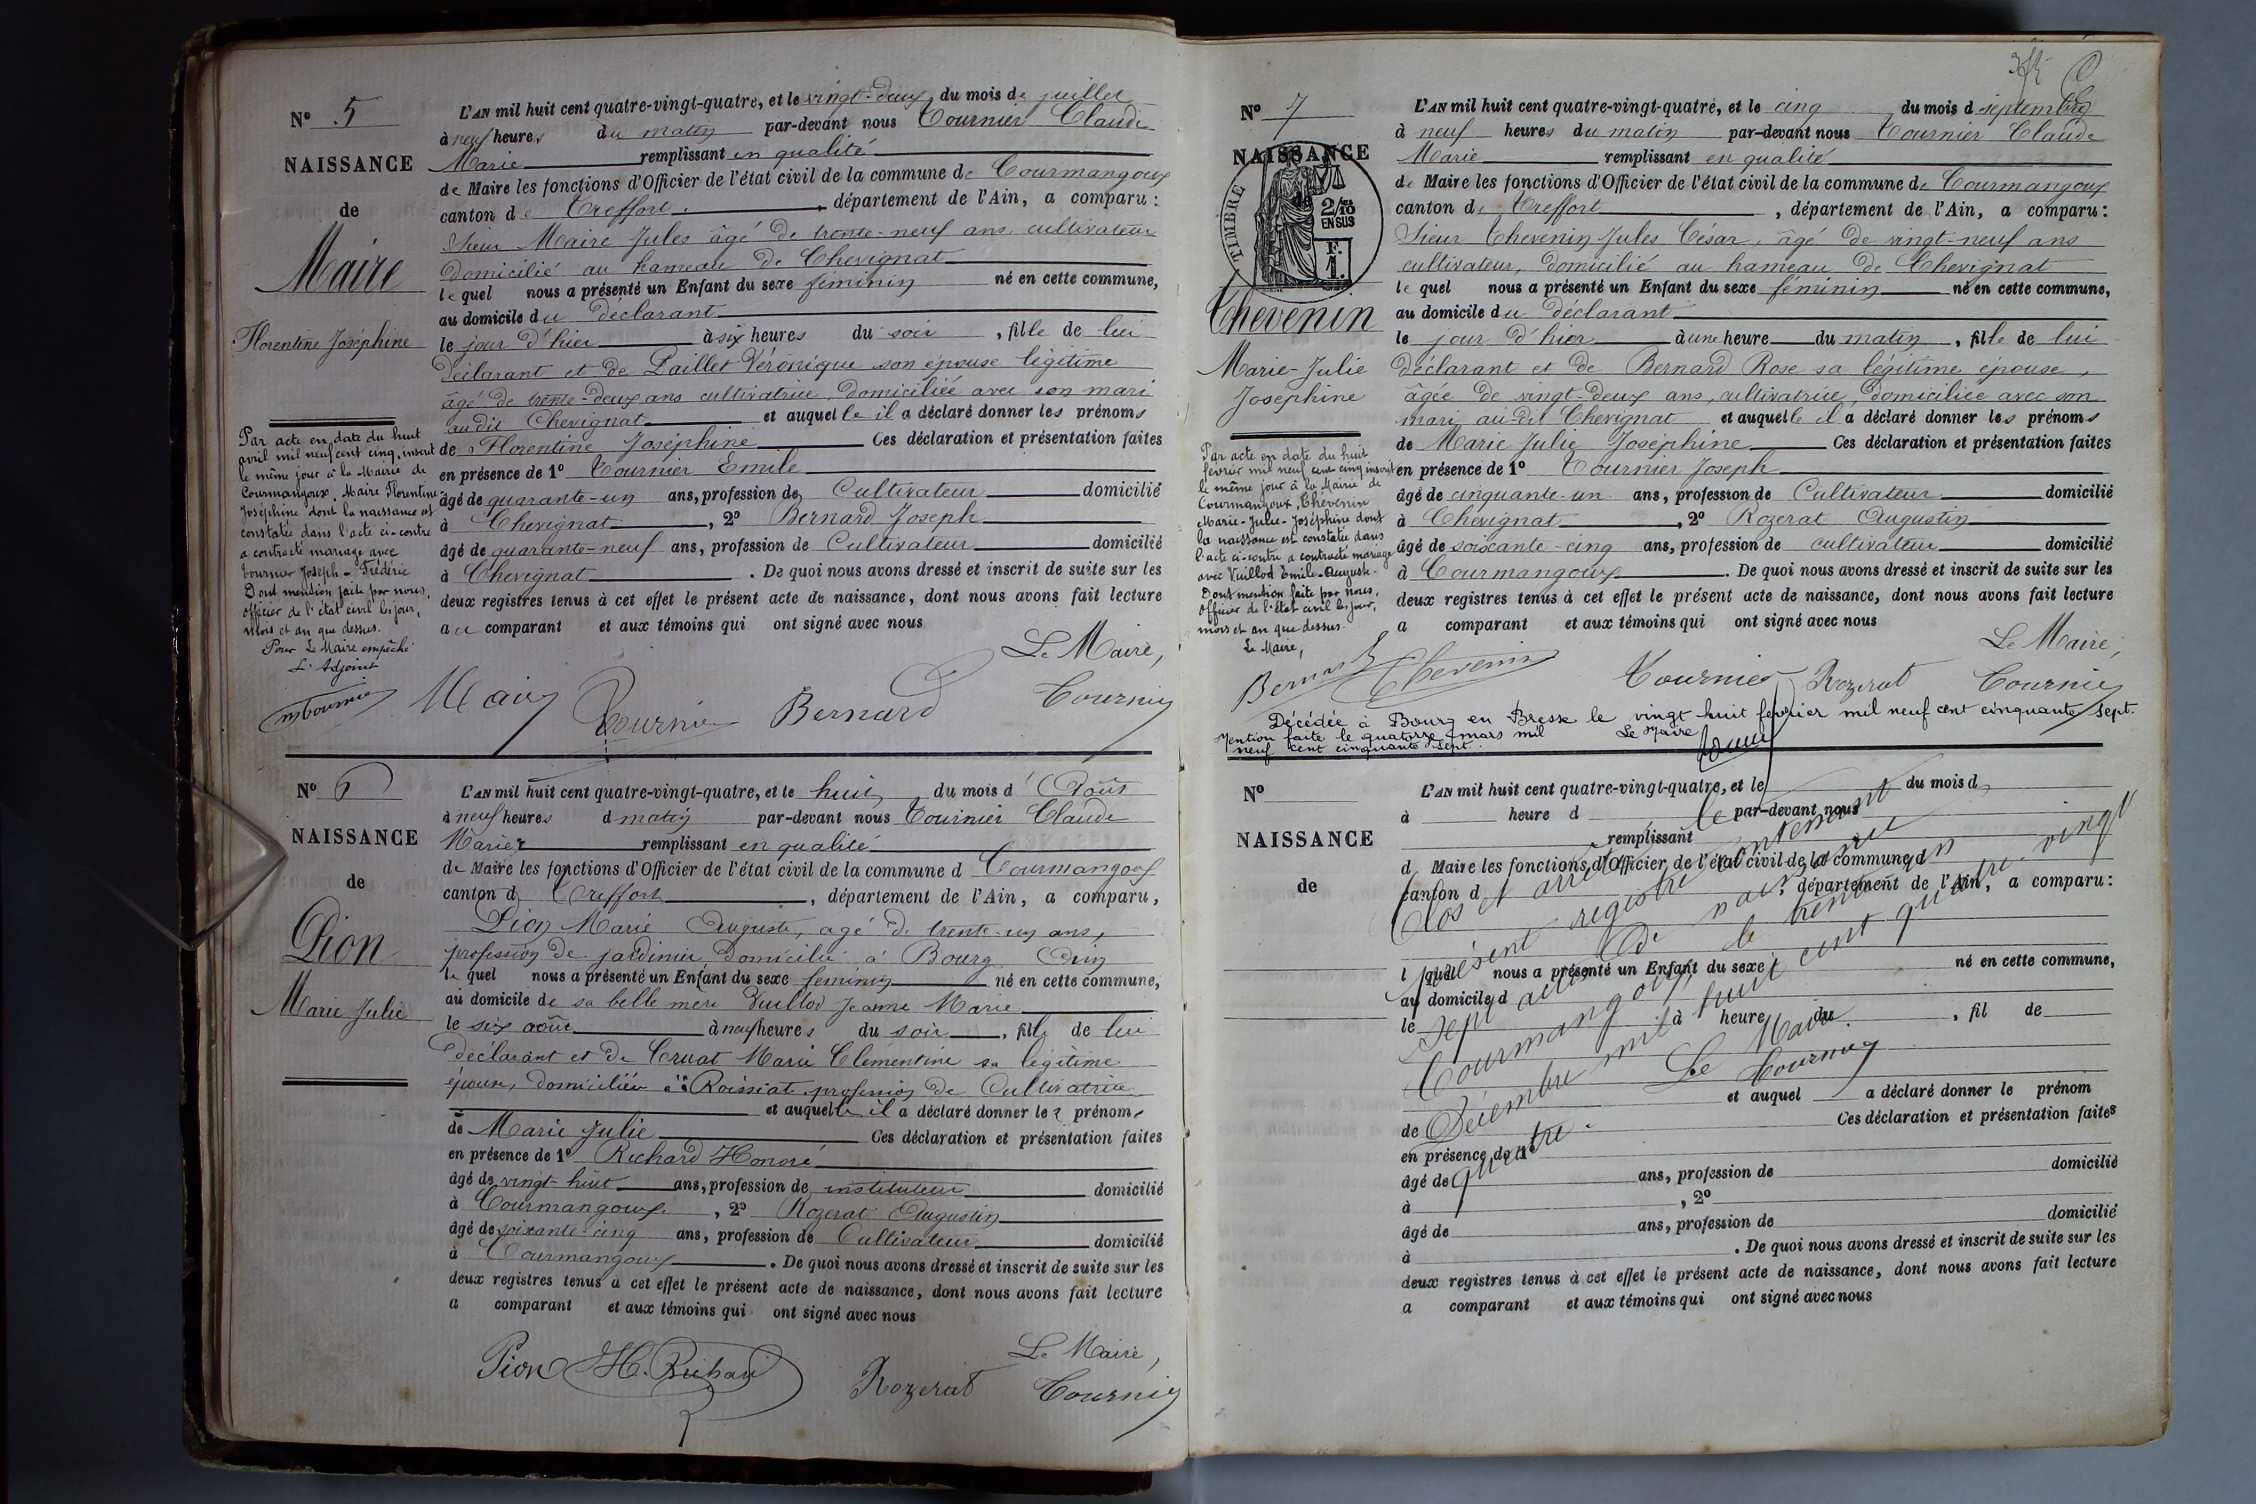 N° 5
NAISSANCE
de
Maire
Florentine Joséphine
Par acte en date du huit
avril mil neuf cent cinq, inscrit
le même jour à la Mairie de
Courmangoux, Maire Florentine
Joséphine dont la naissance est
constatée dans l'acte ci-contre
a contracté mariage avec
Tournier Joseph-Frédéric
Dont mention faite par nous,
officier de l'état civil les jour,
mois et an que dessus.
Pour Le Maire empêché
L'Adjoint
L'AN mil huit cent quatre-vingt-quatre, et le vingt-deux du mois de juillet
à neuf heures du matin par-devant nous Tournier Claude
Marie remplissant en qualité
de Maire les fonctions d'Officier de l'état civil de la commune de Courmangoux
canton de Treffort, département de l'Ain, a comparu :
Sieur Maire Jules âgé de trente-neuf ans, cultivateur
domicilié au hameau de Chevignat
lequel nous a présenté un Enfant du sexe féminin né en cette commune,
au domicile du déclarant
le jour d'hier à six heures du soir, fille de lui
déclarant et de Paillet Véronique son épouse légitime
âgé de trente-deux ans cultivatrice, domiciliée avec son mari
audit Chevignat et auquel le il a déclaré donner les prénoms
de Florentine Joséphine Ces déclaration et présentation faites
en présence de 1° Tournier Emile
âgé de quarante-un ans, profession de Cultivateur domicilié
à Chevignat, 2° Bernard Joseph
âgé de quarante-neuf ans, profession de Cultivateur domicilié
à Chevignat. De quoi nous avons dressé et inscrit de suite sur les
deux registres tenus à cet effet le présent acte de naissance, dont nous avons fait lecture
au comparant et aux témoins qui ont signé avec nous
Le Maire,
Maire Tournier Bernard Tournier
N° 6
NAISSANCE
de
Pion
Marie Julie
L'AN mil huit cent quatre-vingt-quatre, et le huit du mois d'Août
à neuf heures d matin par-devant nous Tournier Claude
Marie remplissant en qualité
de Maire les fonctions d'Officier de l'état civil de la commune d Courmangoux
canton d Treffort, département de l'Ain, a comparu,
Pion Marie Auguste, agé de trente-un ans,
profession de jardinier domicilié à Bourg Ain
lequel nous a présenté un Enfant du sexe féminin né en cette commune,
au domicile de sa belle mère Vuillod Jeanne Marie
le six août à neuf heures du soir, fille de lui
déclarant et de Cruat Marie Clémentine sa légitime
épouse, domiciliée à Roissiat profession de Cultivatrice
et auquel le il a déclaré donner les prénoms
de Marie Julie Ces déclaration et présentation faites
en présence de 1° Richard Honoré
âgé de vingt-huit ans, profession de instituteur domicilié
à Courmangoux, 2° Rozerat Augustin
âgé de soixante-cinq ans, profession de Cultivateur domicilié
à Courmangoux. De quoi nous avons dressé et inscrit de suite sur les
deux registres tenus à cet effet le présent acte de naissance, dont nous avons fait lecture
a comparant et aux témoins qui ont signé avec nous
Le Maire,
Pion H. Richard Rozerat Tournier
N° 7
NAISSANCE
de
TIMBRE
2/10
EN SUS
F.
1.
Thevenin
Marie-Julie
Joséphine
Par acte en date du huit
février mil neuf cent cinq inscrit
le même jour à la Mairie de
Courmangoux, Thévenin
Marie-Julie-Joséphine dont
la naissance est constatée dans
l'acte ci-contre a contracté mariage
avec Vuillod Emile-Auguste.
Dont mention faite par nous,
officier de l'état civil les jour,
mois et an que dessus.
Le Maire,
L'AN mil huit cent quatre-vingt-quatre, et le cinq du mois d septembre
à neuf heures du matin par-devant nous Tournier Claude
Marie remplissant en qualité
de Maire les fonctions d'Officier de l'état civil de la commune de Courmangoux
canton de Treffort, département de l'Ain, a comparu :
Sieur Thevenin Jules César, âgé de vingt-neuf ans
cultivateur, domicilié au hameau de Chevignat
lequel nous a présenté un Enfant du sexe féminin né en cette commune,
au domicile du déclarant
le jour d'hier à une heure du matin, fille de lui
déclarant et de Bernard Rose sa légitime épouse,
âgée de vingt-deux ans, cultivatrice, domiciliée avec son
mari au-dit Chevignat et auquel le il a déclaré donner les prénoms
de Marie Julie Joséphine Ces déclaration et présentation faites
en présence de 1° Tournier Joseph
âgé de cinquante-un ans, profession de Cultivateur domicilié
à Chevignat, 2° Rozerat Augustin
âgé de soixante-cinq ans, profession de cultivateur domicilié
à Courmangoux. De quoi nous avons dressé et inscrit de suite sur les
deux registres tenus à cet effet le présent acte de naissance, dont nous avons fait lecture
a comparant et aux témoins qui ont signé avec nous
Le Maire,
Thevenin Tournier Rozerat Tournier
Décédée à Bourg en Bresse le vingt huit février mil neuf cent cinquante sept.
Mention faite le quatorze mars mil
neuf cent cinquante sept.
Le Maire
N°
NAISSANCE
de
L'AN mil huit cent quatre-vingt-quatre, et le du mois d
à heure d par-devant nous
remplissant
d Maire les fonctions d'Officier de l'état civil de la commune d
canton d, département de l'Ain, a comparu :
l quel nous a présenté un Enfant du sexe né en cette commune,
au domicile d
le à heure du, fil de
et auquel a déclaré donner le prénom
de Ces déclaration et présentation faites
en présence de 1°
âgé de ans, profession de domicilié
à, 2°
âgé de ans, profession de domicilié
à. De quoi nous avons dressé et inscrit de suite sur les
deux registres tenus à cet effet le présent acte de naissance, dont nous avons fait lecture
a comparant et aux témoins qui ont signé avec nous
Clos et arrêté le
présent registre contenant
sept actes de naissance
Courmangoux, le trente-un
Décembre mil huit cent quatre-vingt
quatre.
Le Maire
Tournier